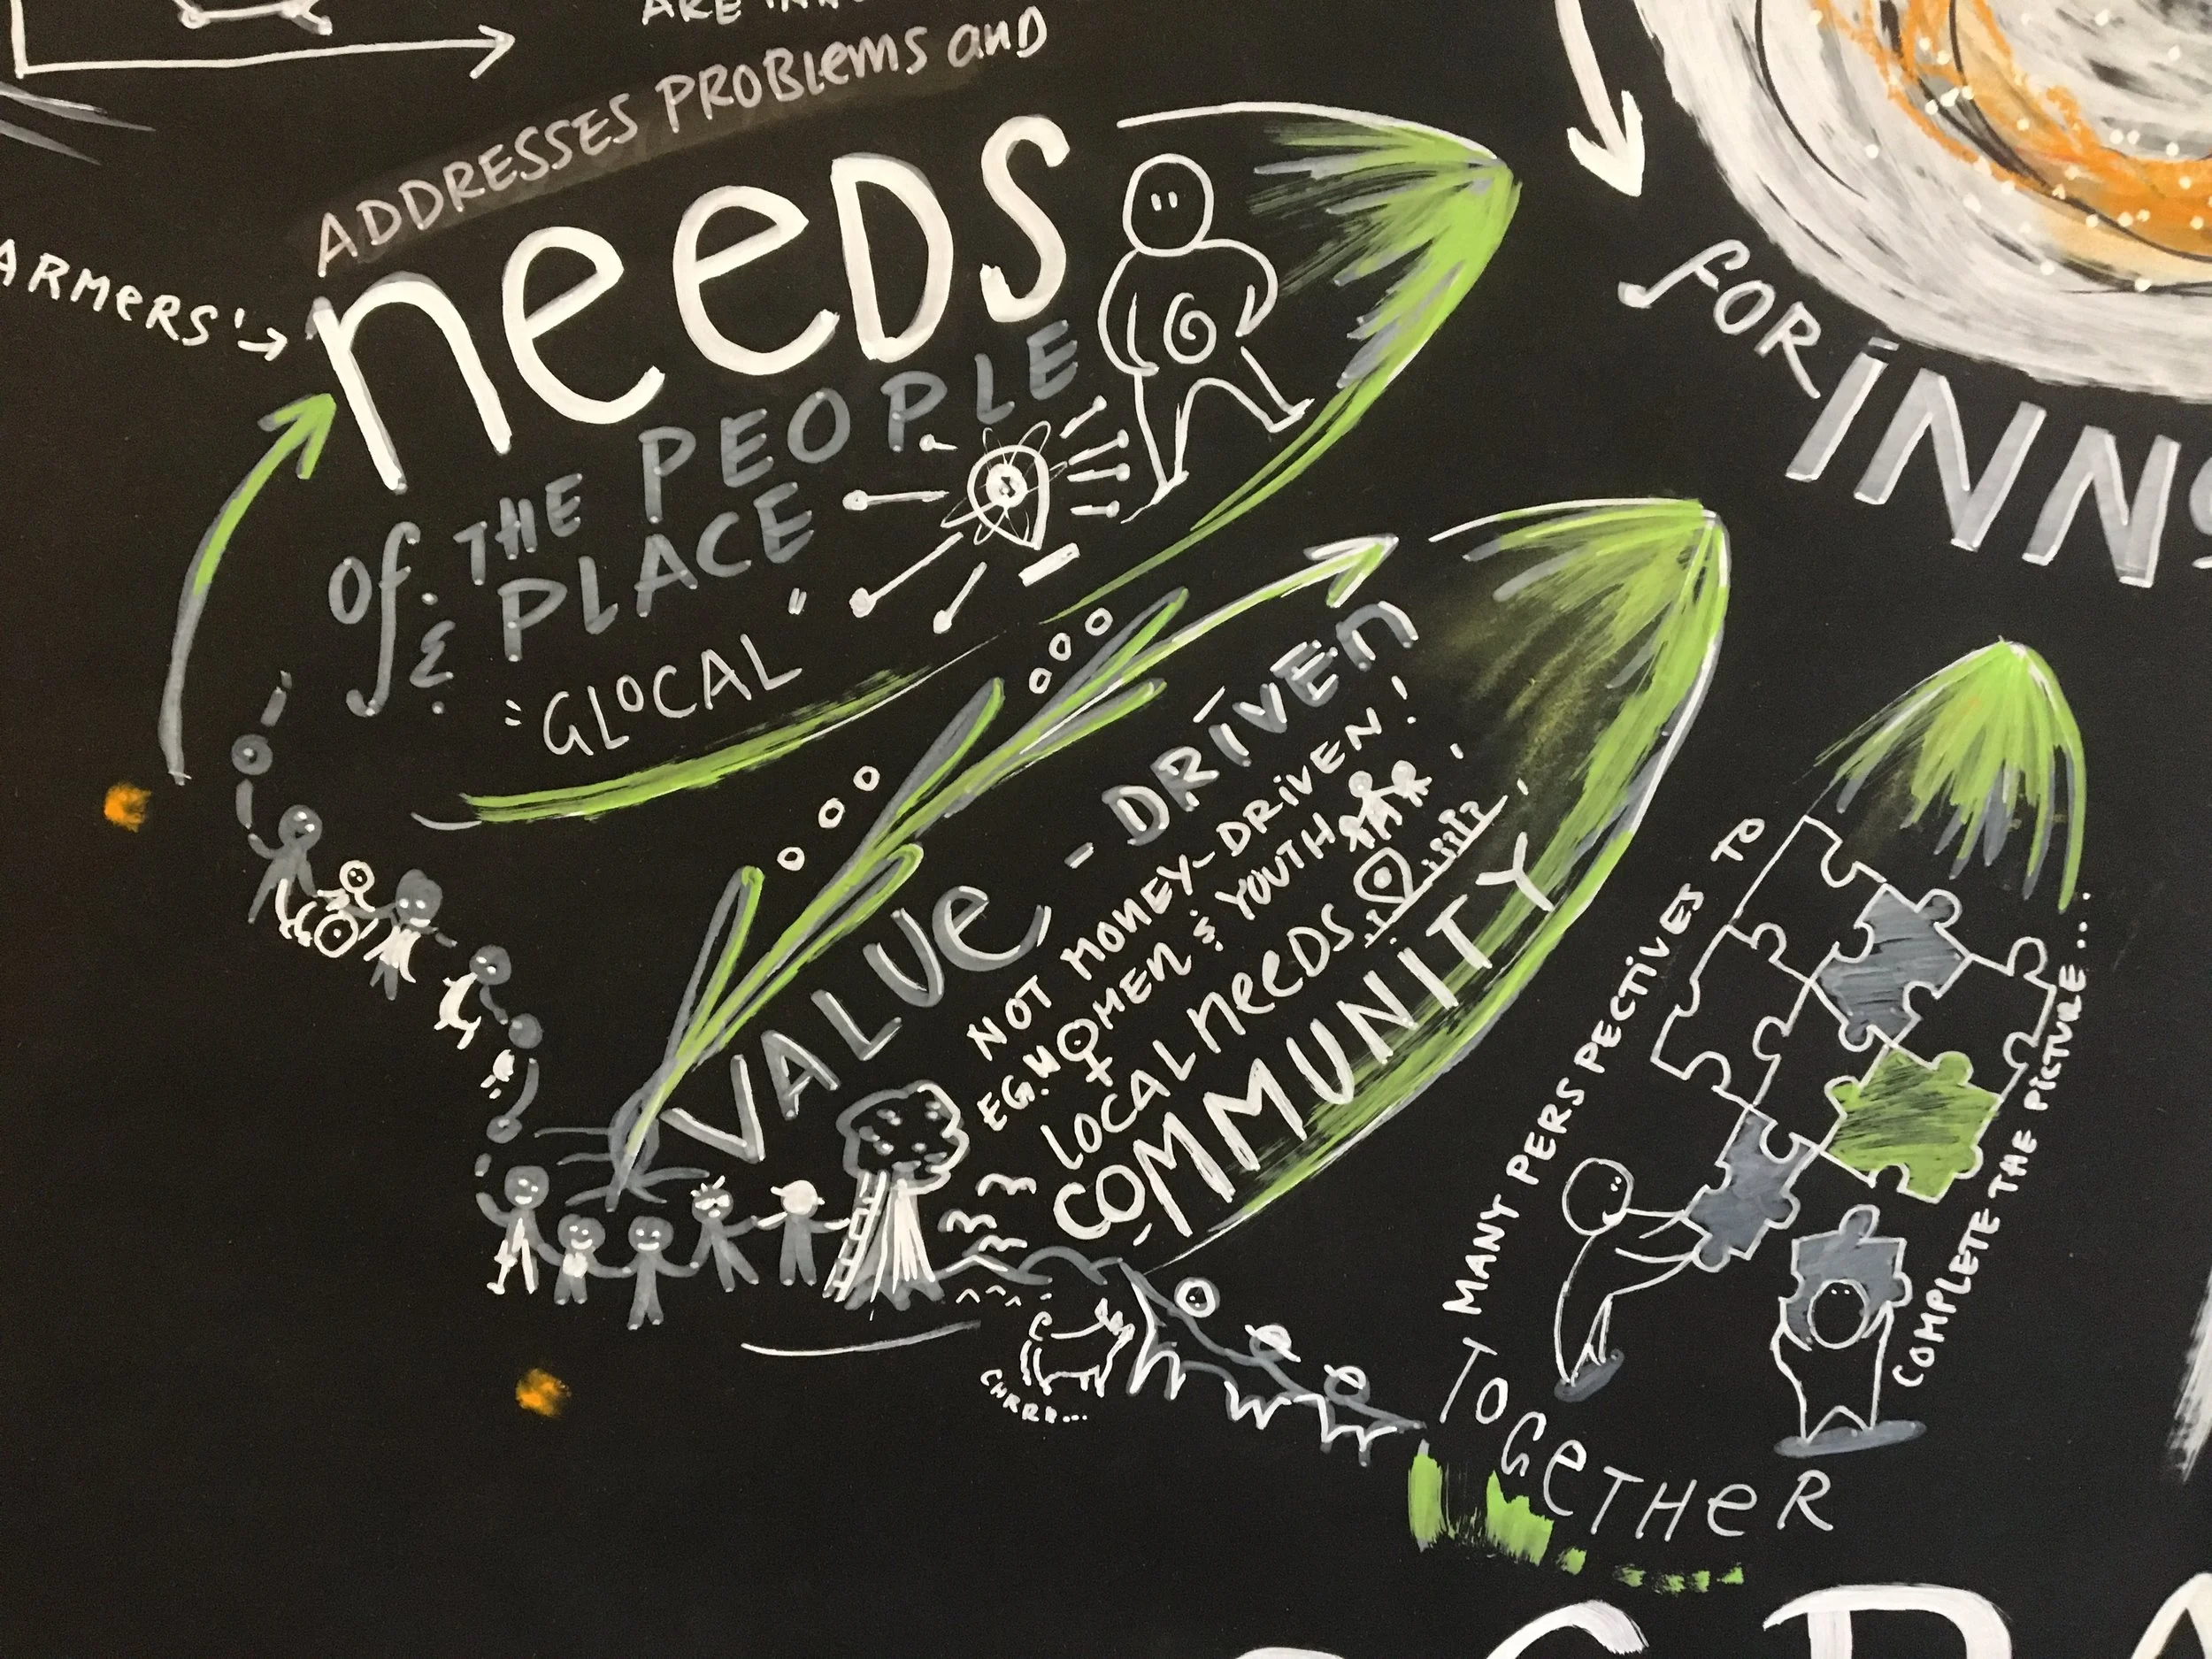 ARE INN
ADDRESSES PROBLEMS AND
ARMERS'
NEEDS
OF THE PEOPLE
& PLACE
"GLOCAL"
FOR INN
VALUE - DRIVEN
NOT MONEY-DRIVEN!
EG. WOMEN & YOUTH
LOCAL NEEDS
COMMUNITY
MANY PERSPECTIVES TO
COMPLETE THE PICTURE...
TOGETHER
CHRRR...